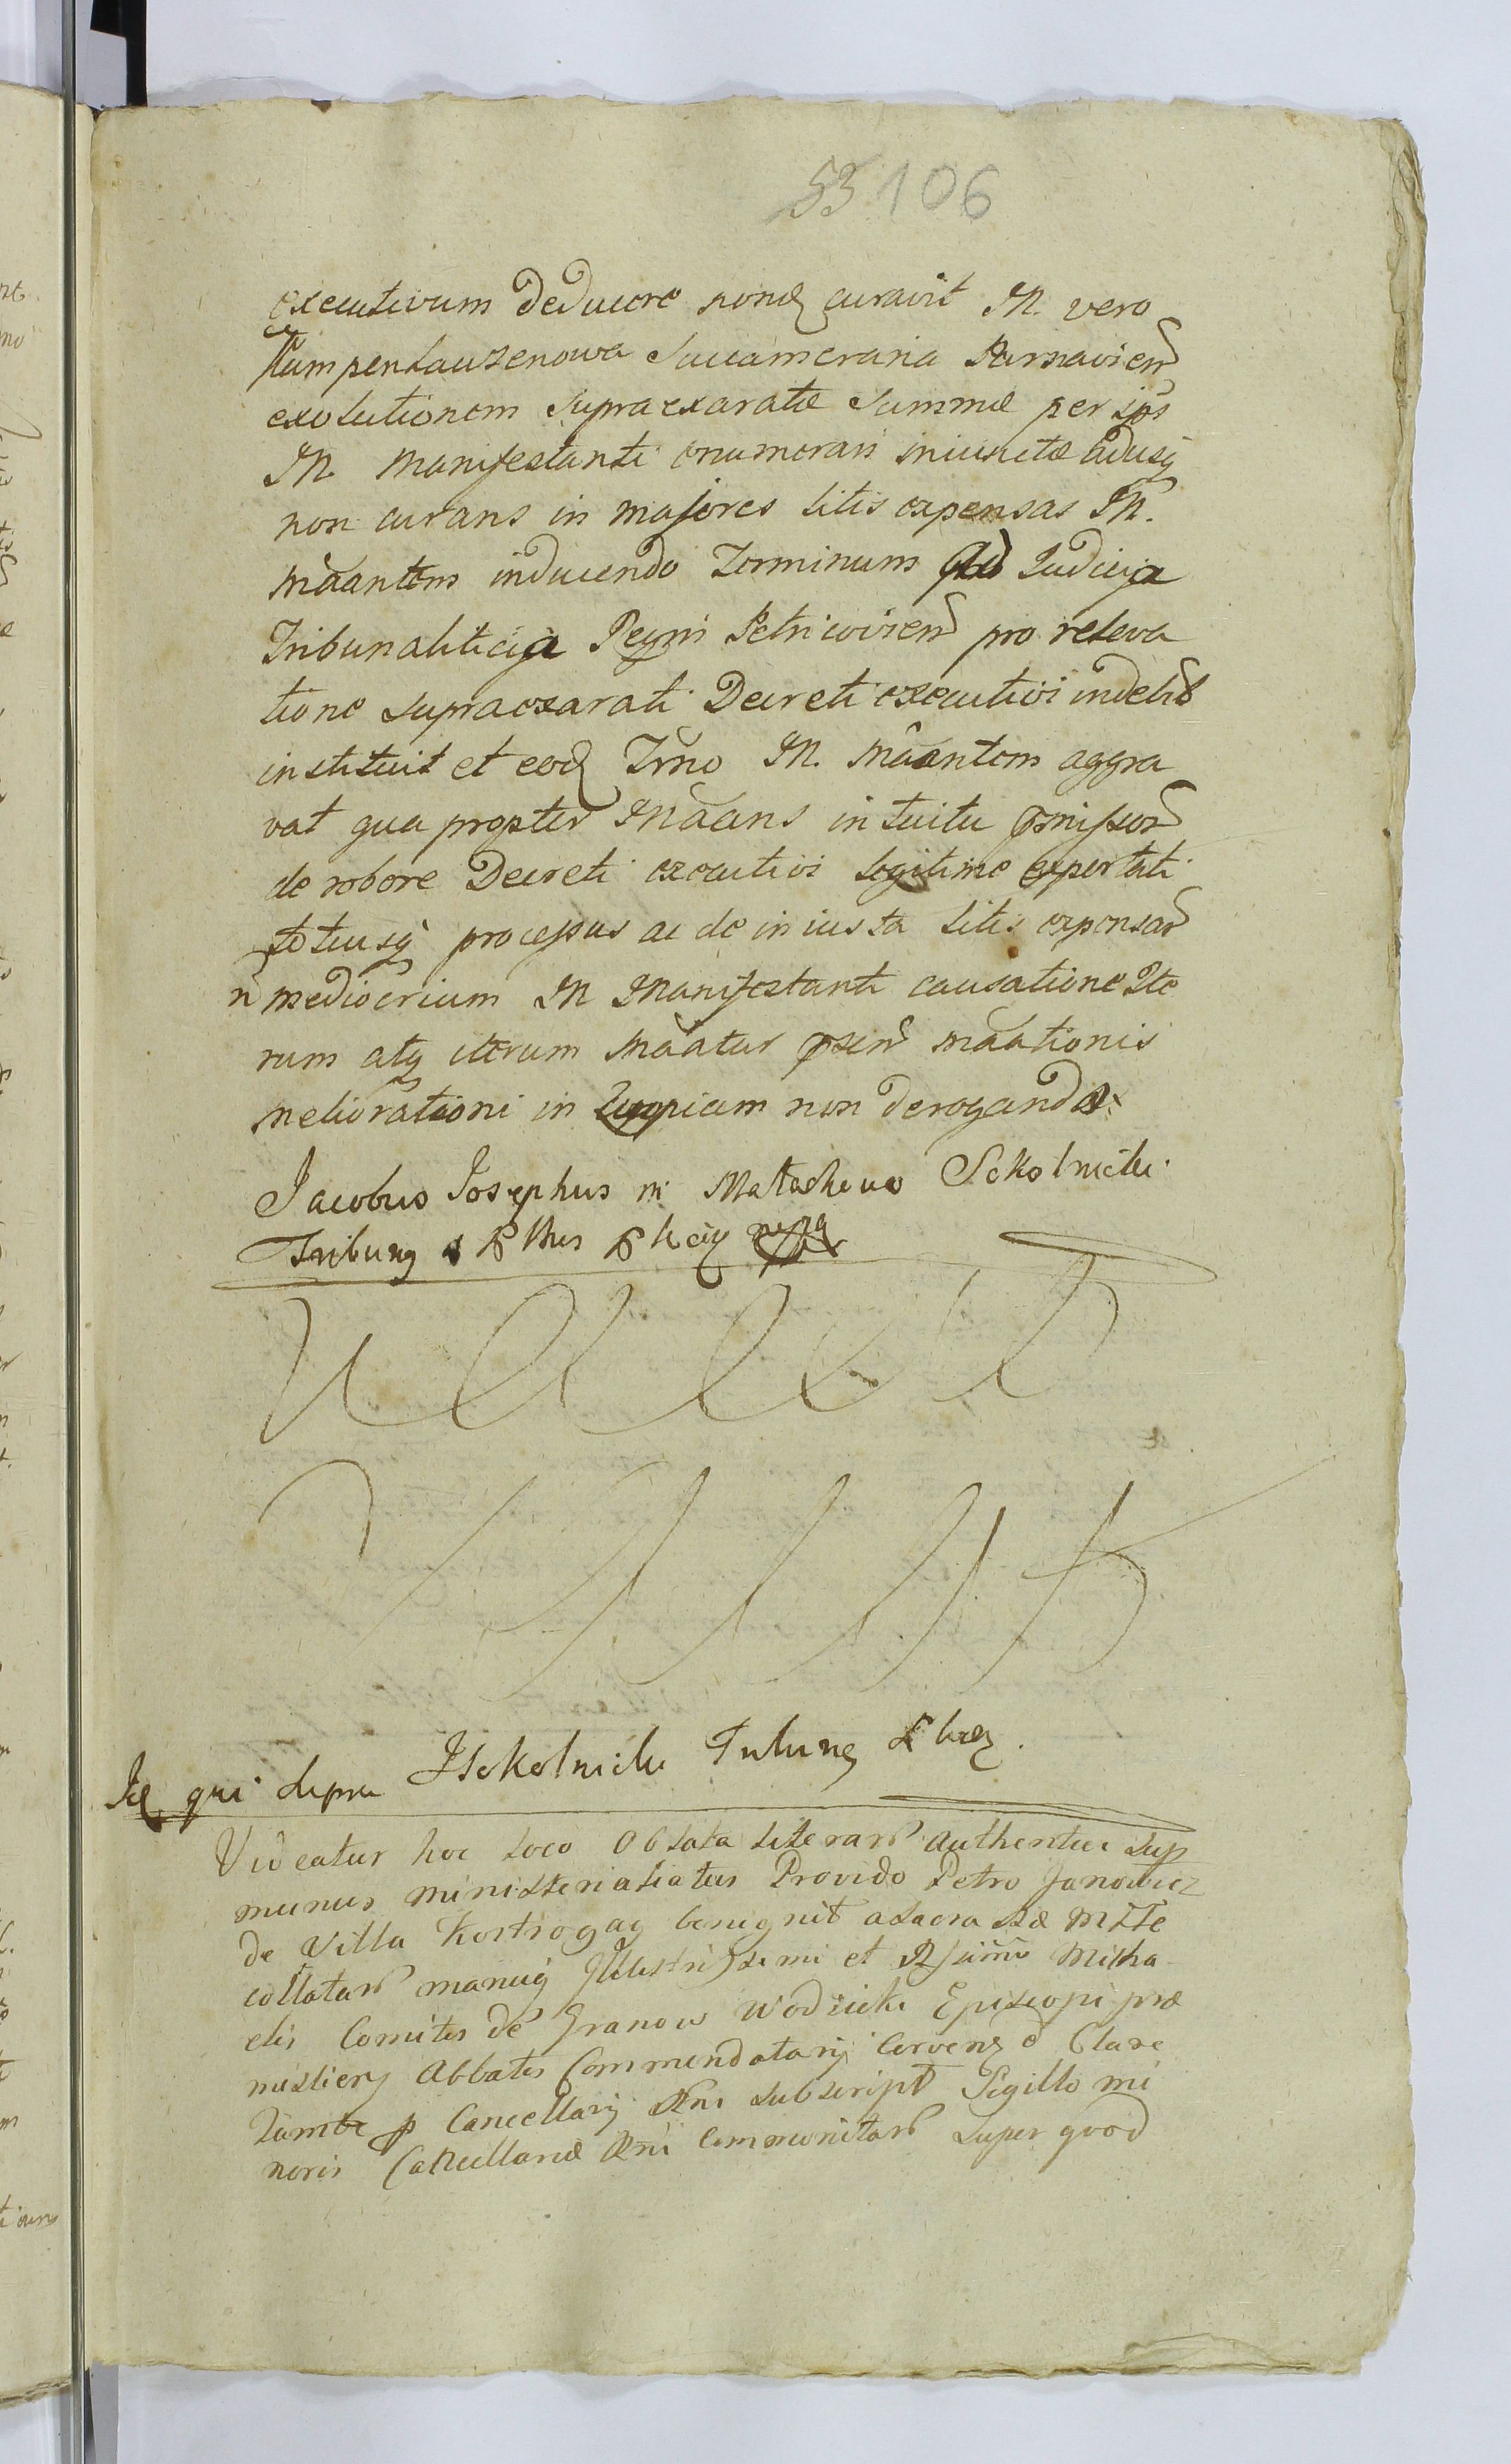 53 106
executivum deducere nonq curavit M. vero
Kampenhauzenowa Succameraria Parnavien
exolutionem supraexaratæ summæ per ips
M. Manifestanti enumerari iniunctæ adusq
non curans in majores litis expensas M.
mãantem inducendo Terminum Ad Judicia
Tribunalitia Regni Petricovien pro releva
tione supraexarati Decreti executivi indebite
instituit et eod Trño M. mãantem aggra
vat qua propter Mãans intuitu pmissor
de robore Decreti executivi legitime exportati
totiusq processus ac de iniusta litis expensar
n mediocrium M Manifestanti causatione Ite
rum atq iterum Mãatur psen mãationis
melioratione in non derogando
Jacobus Josephus Sokolnicki
Tribung
Id qui supra JSokolnicki
Videatur hoc loco Oblata Literar authentice sup
munus ministerialiatus Provido Petro Janowicz
de Villa benignit a Sacra Rã Mtte
collatar manuq Illustrissimi et Rssimi Micha
elis Comitis de Granow Wodzicki Episcopi præ
Abbatis Commendatarij et Clare
Tumbe p Cancellarij Rni subscript Sigillo mi
noris Cancellariæ Rni Communitar super quod